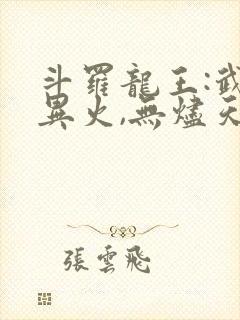 斗羅龍王:武
異火,無燼天
張雲飛